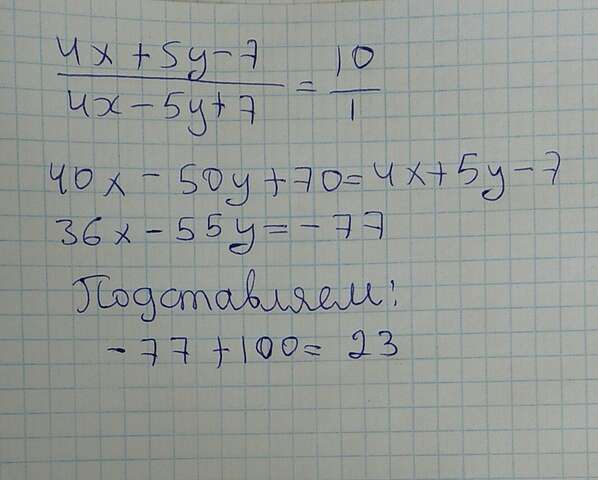 4x+5y-7
4x-5y+7
=
10
1
40x-50y+70=4x+5y-7
36x-55y=-77
Подставляем:
-77+100=23